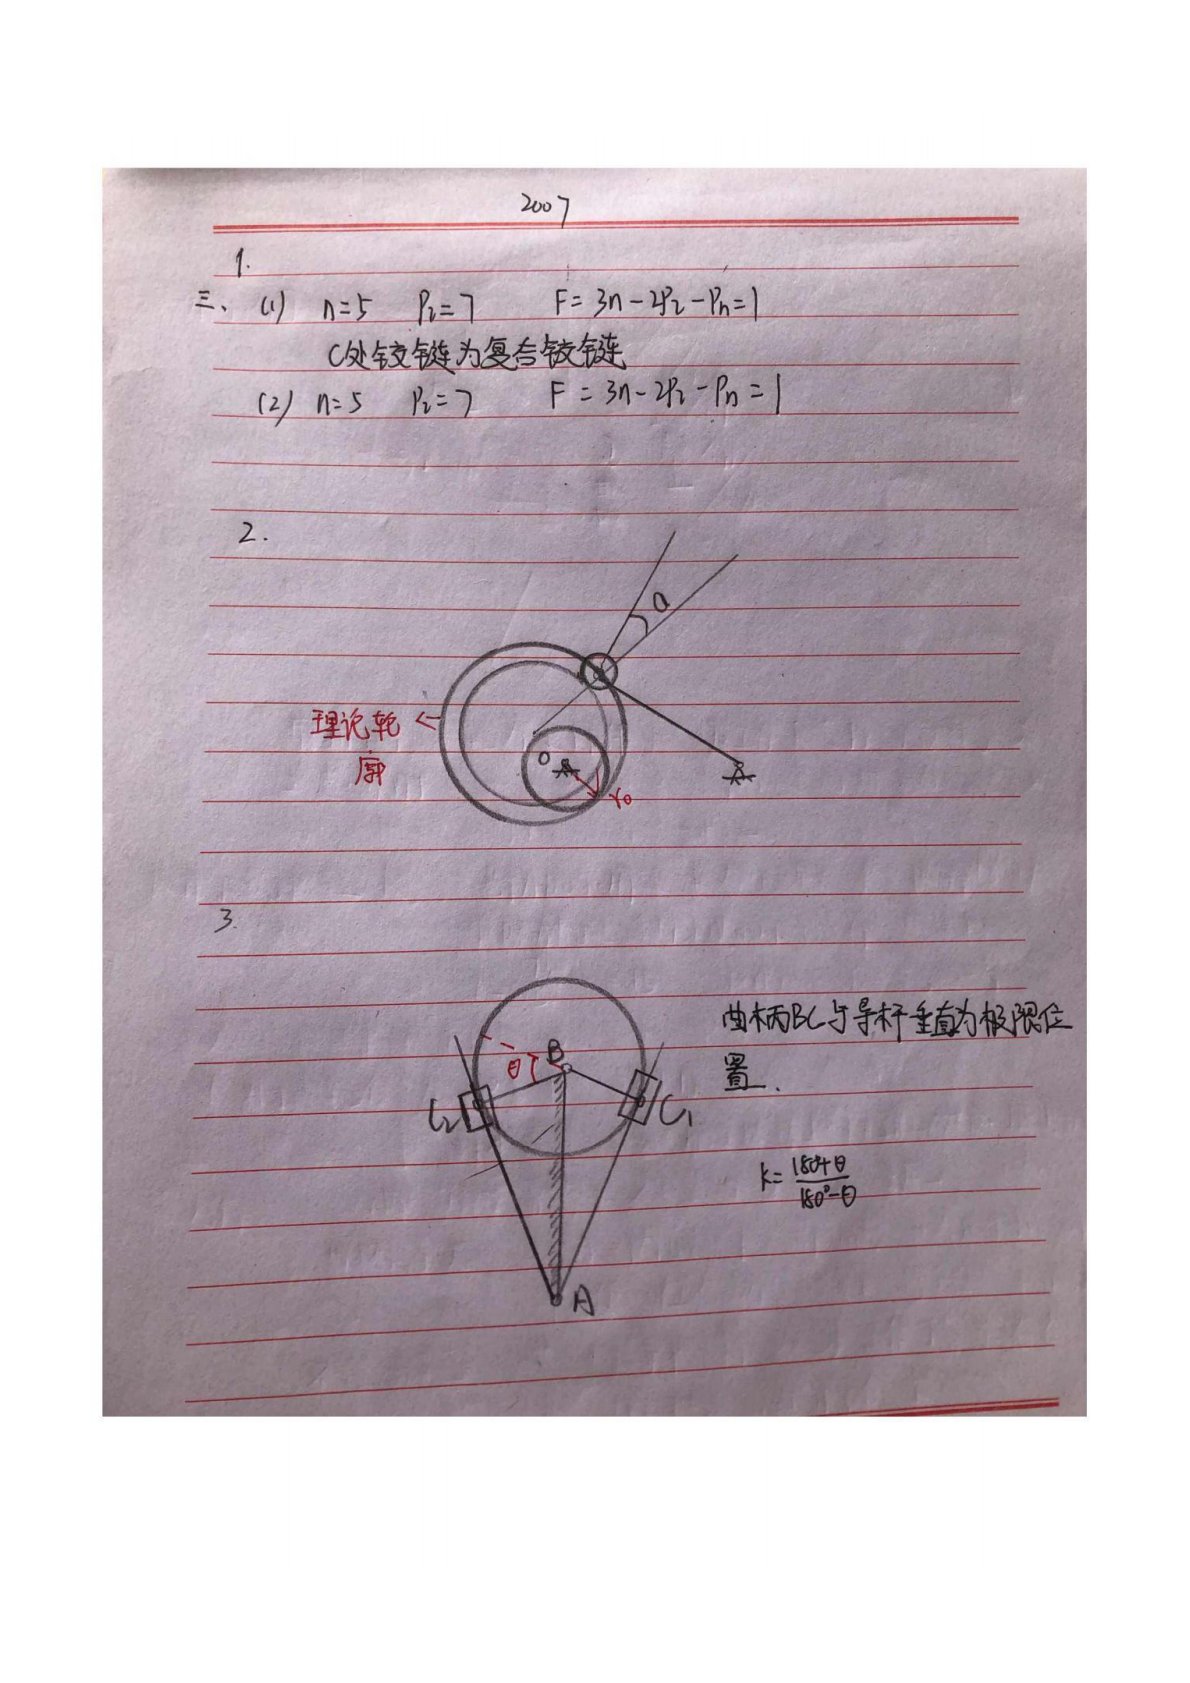 2007
1.
三、(1) n=5 PL=7 F=3n-2PL-Pn=1
C处铰链为复合铰链
(2) n=5 PL=7 F=3n-2PL-Pn=1
2.
a
理论轮
廓
O
r0
3.
曲柄BC与导杆垂直为极限位
置.
B
θ
C2
C1
K=180°+θ/180°-θ
A